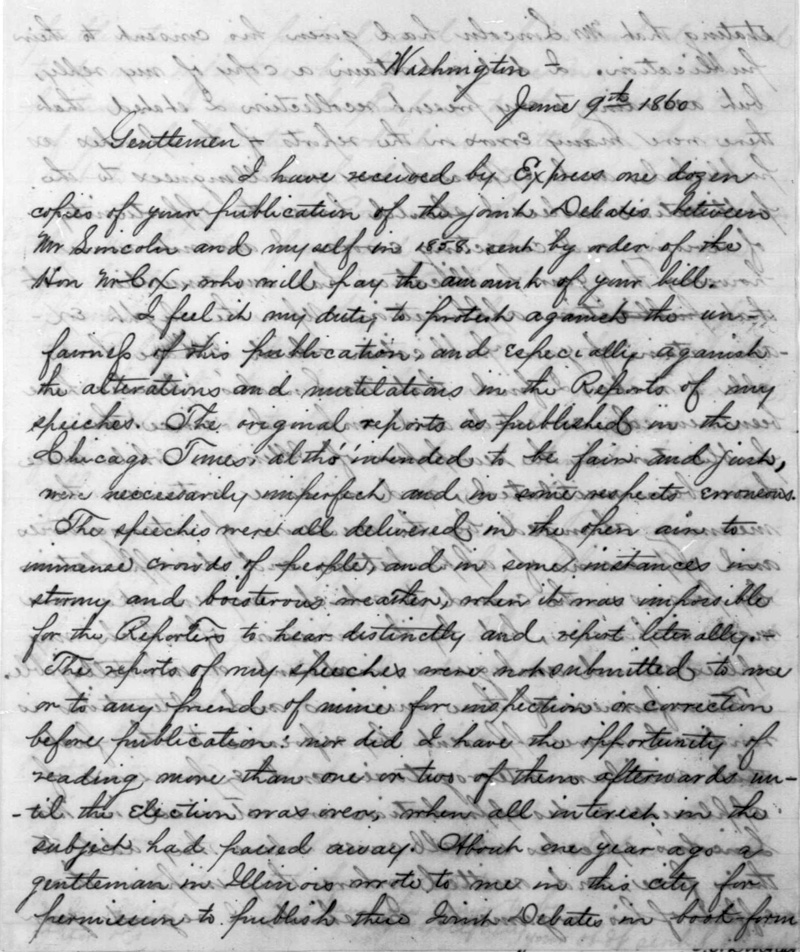 Washington –
June 9th 1860
Gentlemen –
I have received by Express one dozen
copies of your publication of the joint Debates between
Mr Lincoln and myself in 1858, sent by order of the
Hon Mr Cox, who will pay the amount of your bill.
I feel it my duty to protest against the un-
fairness of this publication, and especially against
the alterations and mutilations in the Reports of my
speeches. The original reports as published in the
Chicago Times, altho' intended to be fair and just,
were necessarily imperfect and in some respects erroneous.
The speeches were all delivered in the open air to
immense crowds of people, and in some instances in
stormy and boisterous weather, when it was impossible
for the Reporters to hear distinctly and report literally. –
The reports of my speeches were not submitted to me
or to any friend of mine for inspection or correction
before publication: nor did I have the opportunity of
reading more than one or two of them afterwards un-
-til the Election was over, when all interest in the
subject had passed away. About one year ago a
gentleman in Illinois wrote to me in this city for
permission to publish these Joint Debates in book form